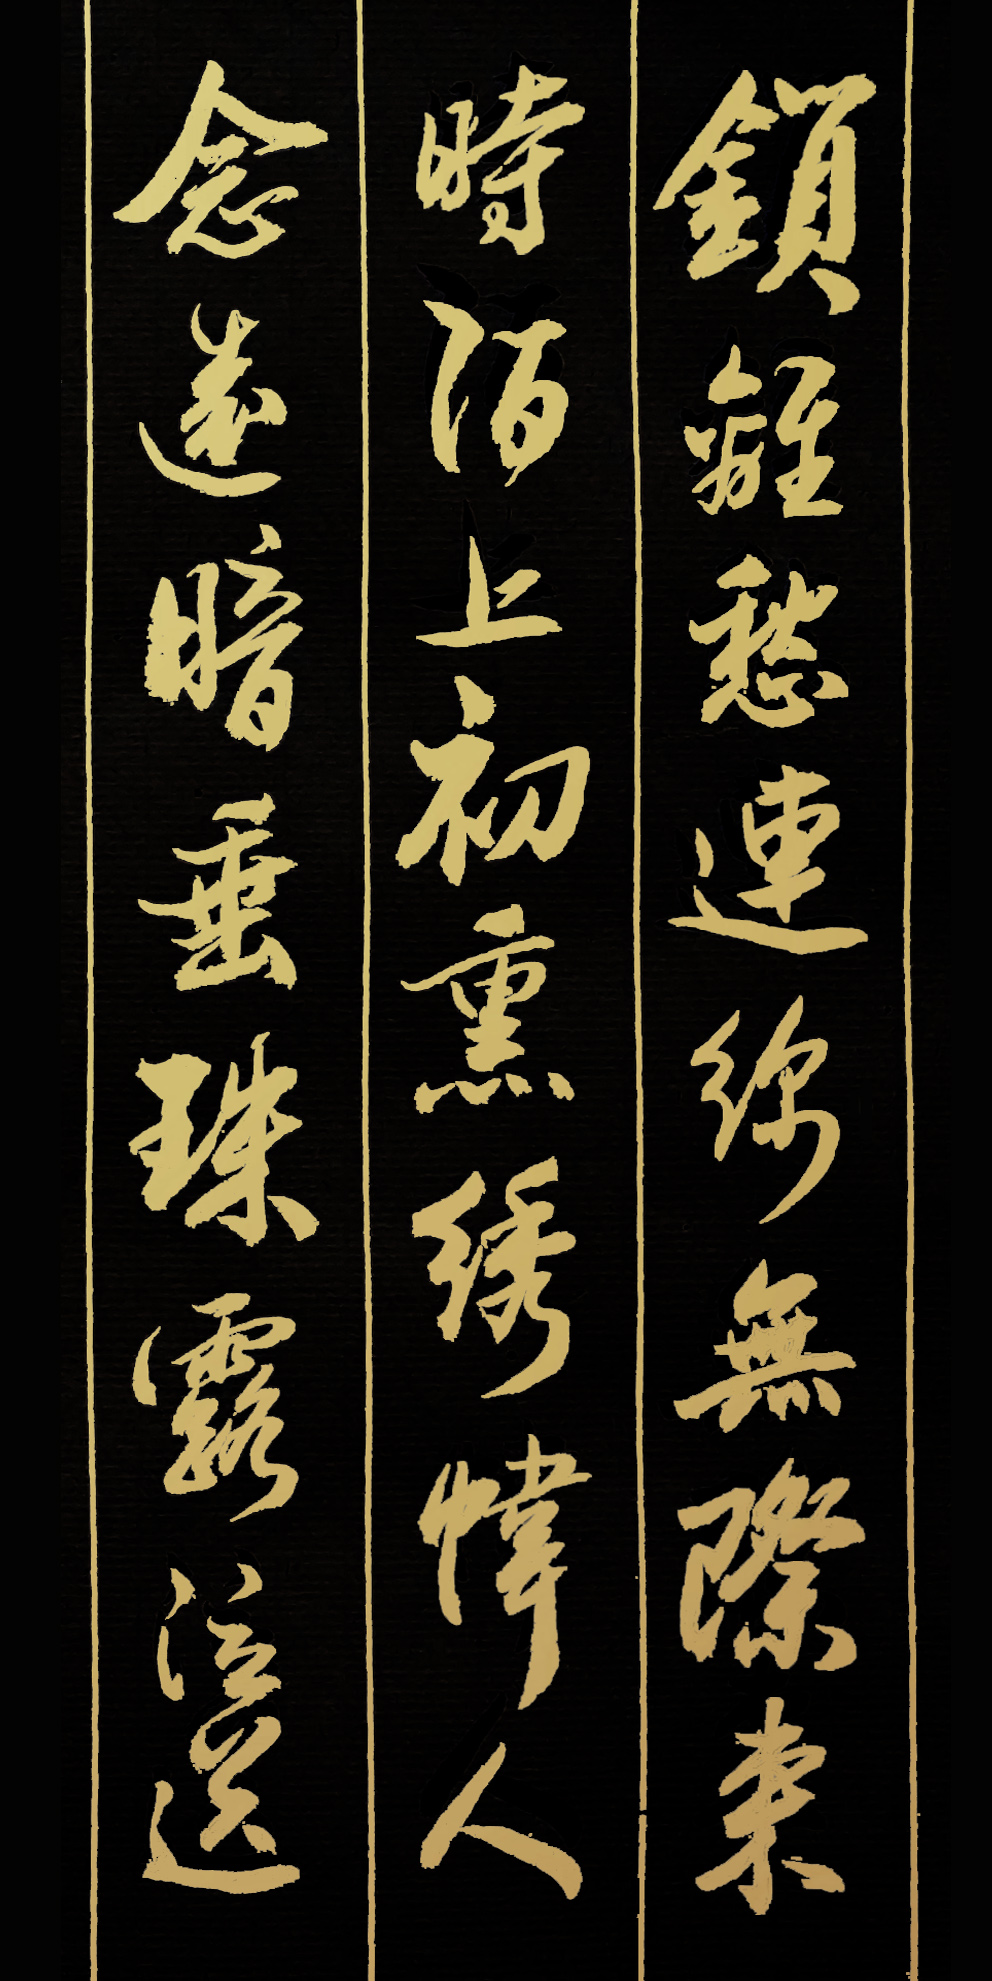 鎖離愁連綿無際來
時陌上初熏綉幃人
念遠暗垂珠露泣送